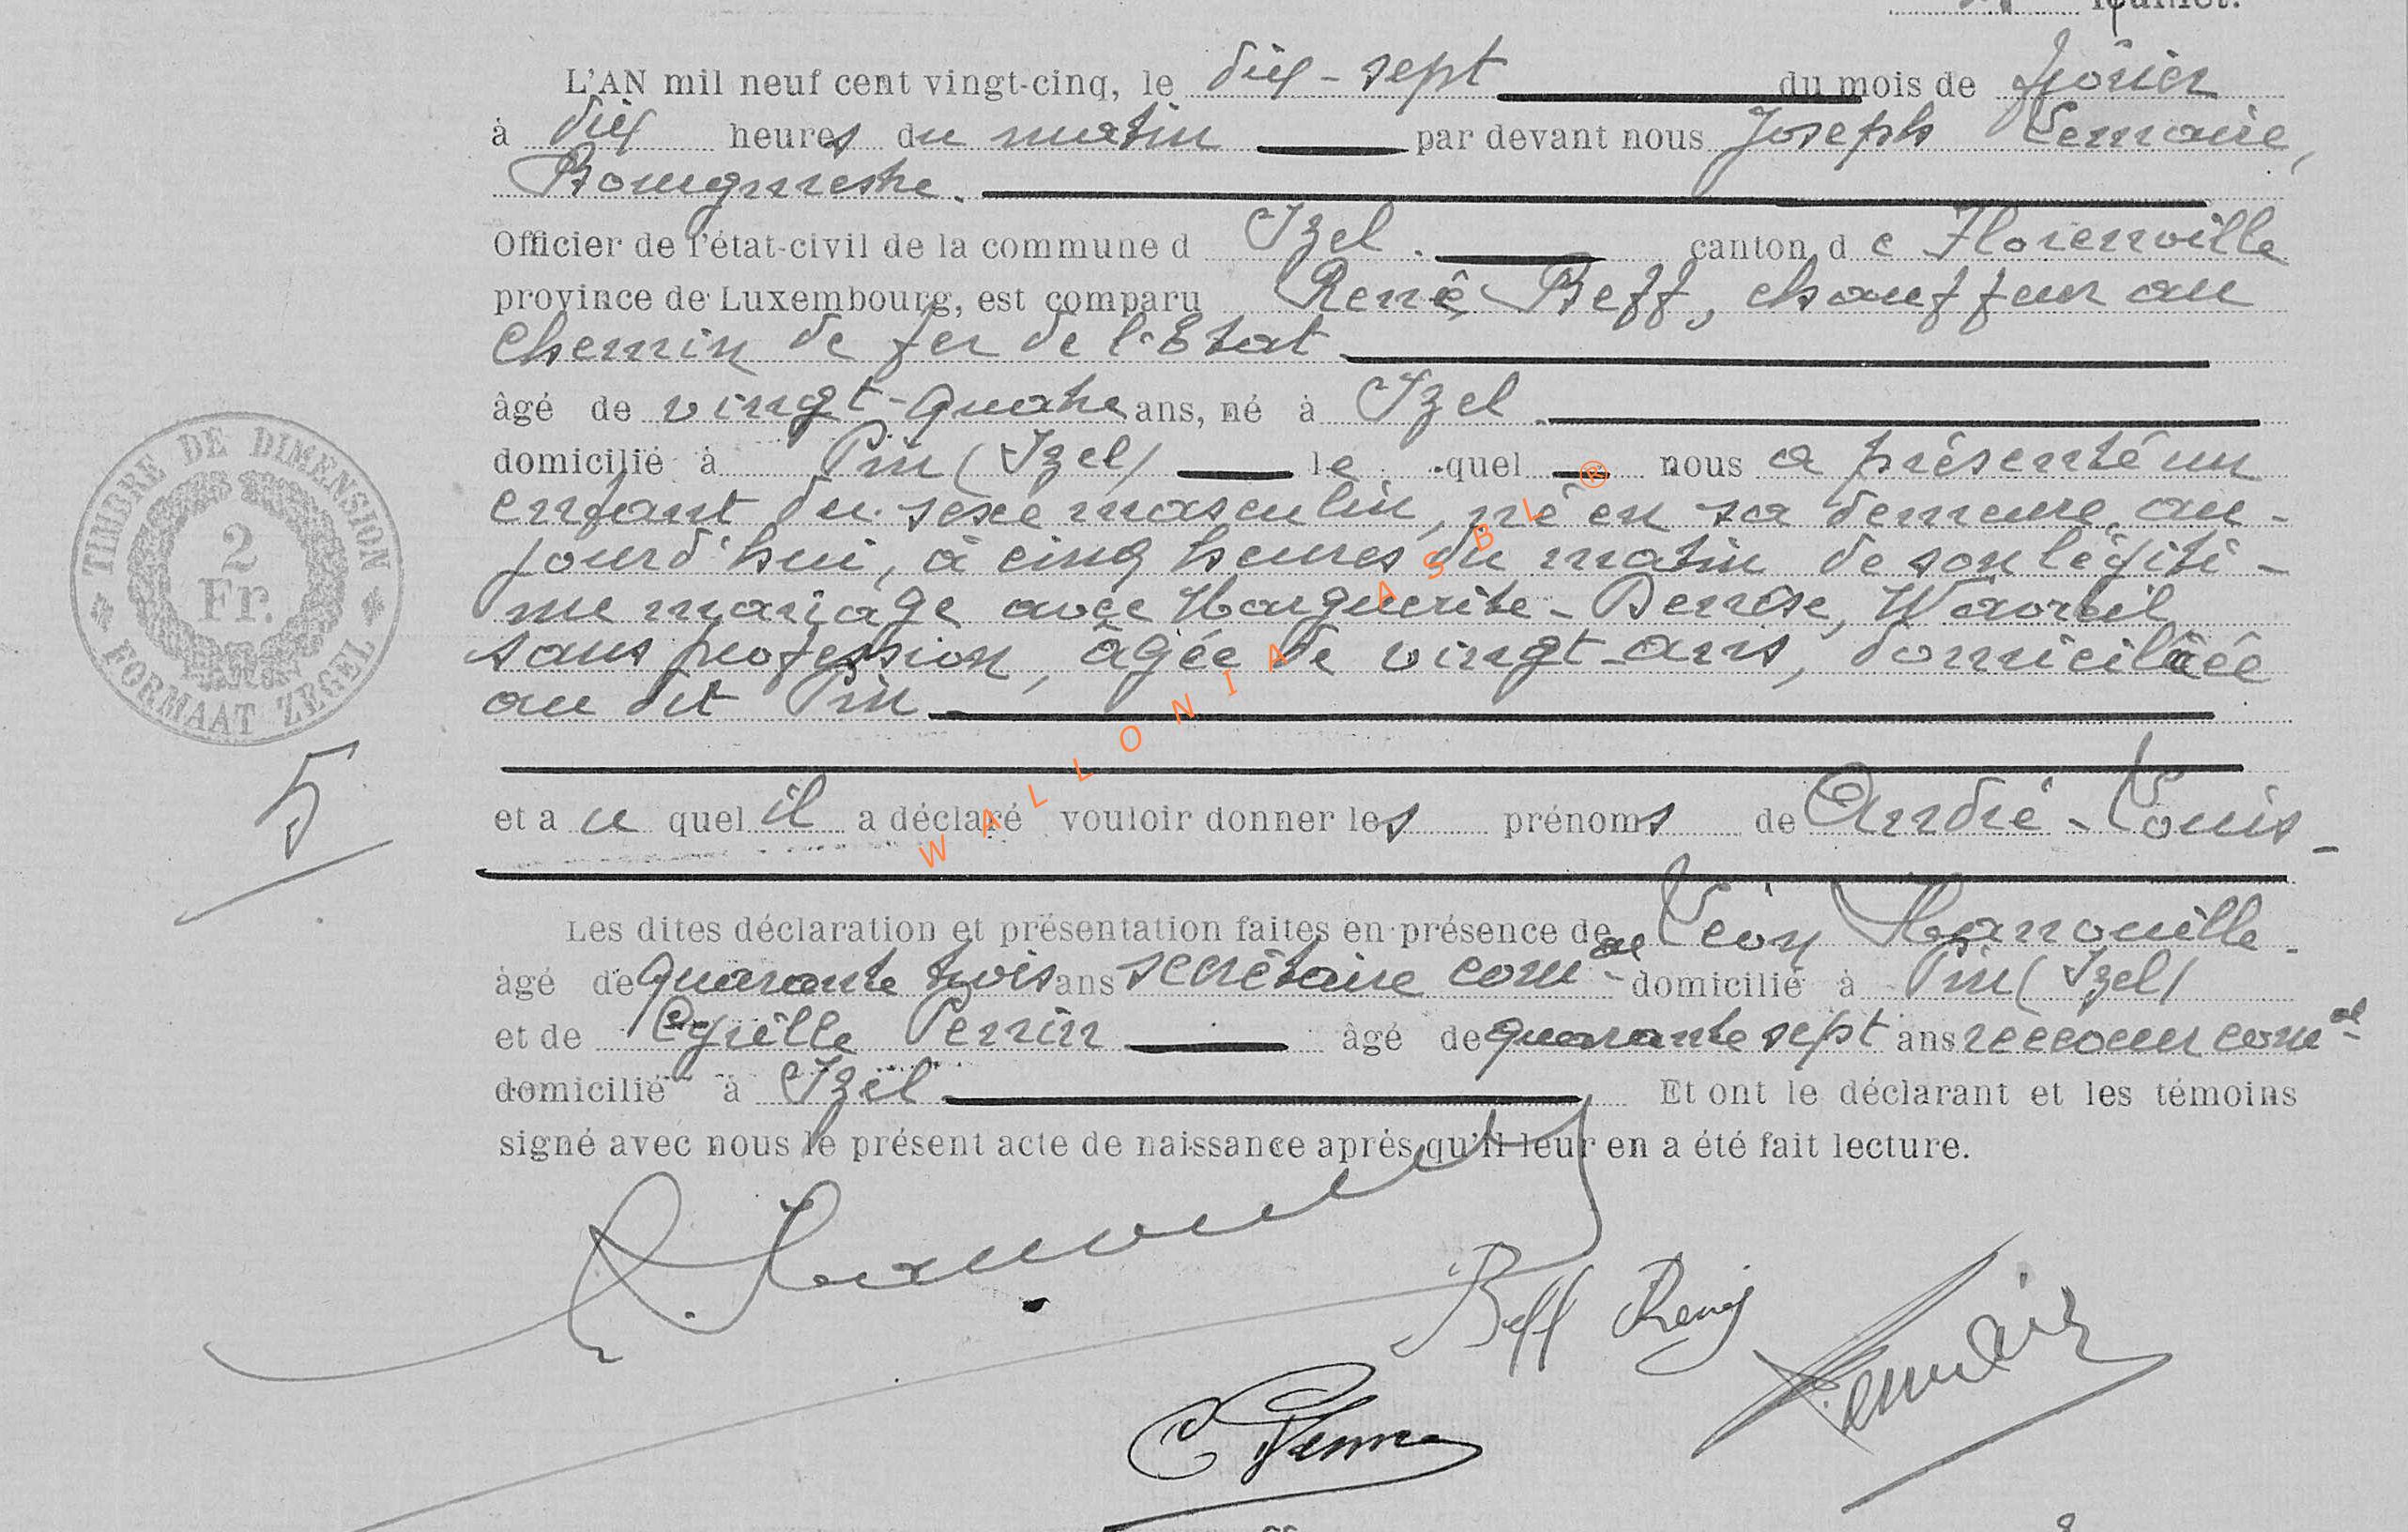 feuillet.
L'AN mil neuf cent vingt-cinq, le dix-sept du mois de février
à dix heures du matin par devant nous Joseph Lemaire,
Bourgmestre.
Officier de l'état-civil de la commune d Izel. canton d e Florenville
province de Luxembourg, est comparu René Beff, chauffeur au
chemin de fer de l'Etat
âgé de vingt-quatre ans, né à Izel
domicilié à Pin (Izel) le quel nous a présenté un
enfant du sexe masculin, né en sa demeure, au-
jourd'hui, à cinq heures du matin de son légiti-
me mariage avec Marguerite-Denise, Wavreil
sans profession, âgée de vingt-ans, domiciliée
au dit Pin
et a u quel il a déclaré vouloir donner les prénoms de André-Louis-
Les dites déclaration et présentation faites en présence de Léon Hanouille
âgé de quarante trois ans secrétaire com.al domicilié à Pin (Izel)
et de Cyrille Perrin âgé de quarante sept ans receveur com.al
domicilié à Izel Et ont le déclarant et les témoins
signé avec nous le présent acte de naissance après qu'il leur en a été fait lecture.
TIMBRE DE DIMENSION
2
Fr.
FORMAAT ZEGEL
5
WALLONIA ASBL ®
Beff René
Lemaire